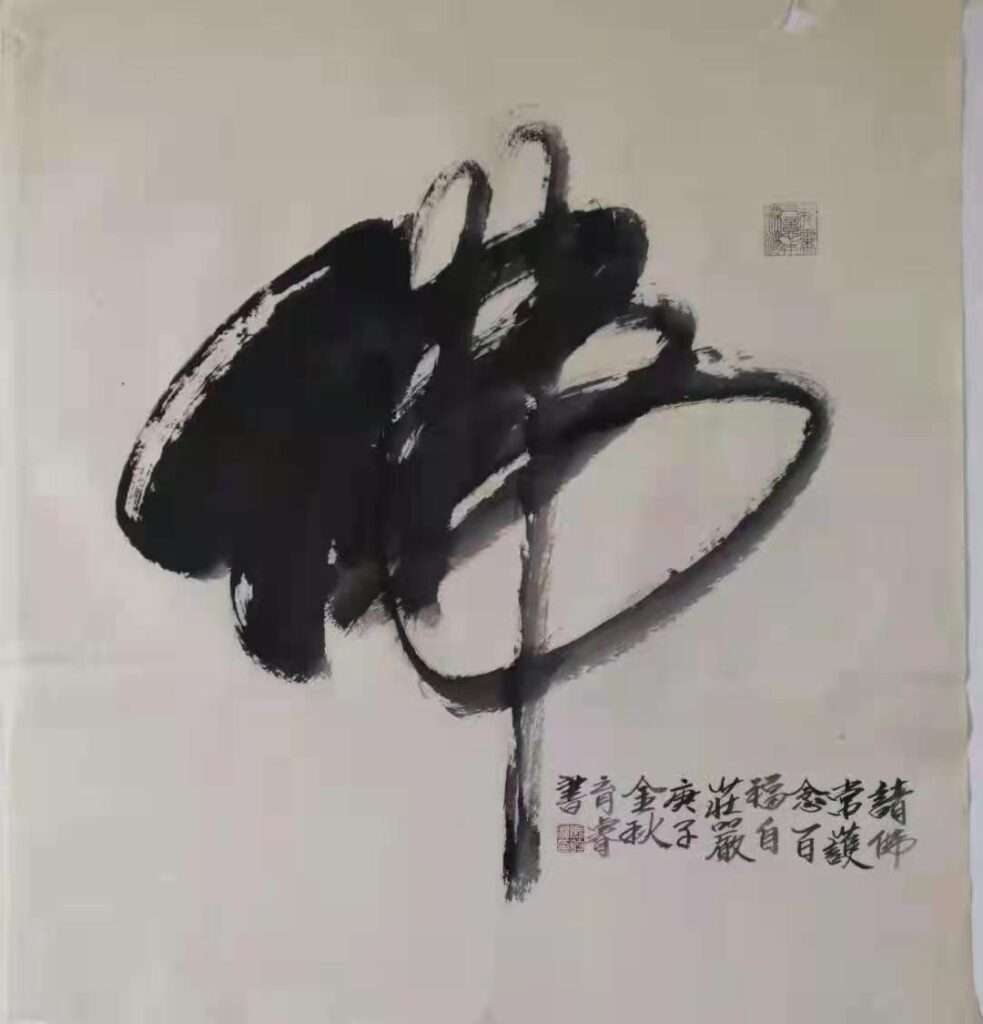 佛
諸佛
常護
念百
福自
莊嚴
庚子
金秋
育睿
書